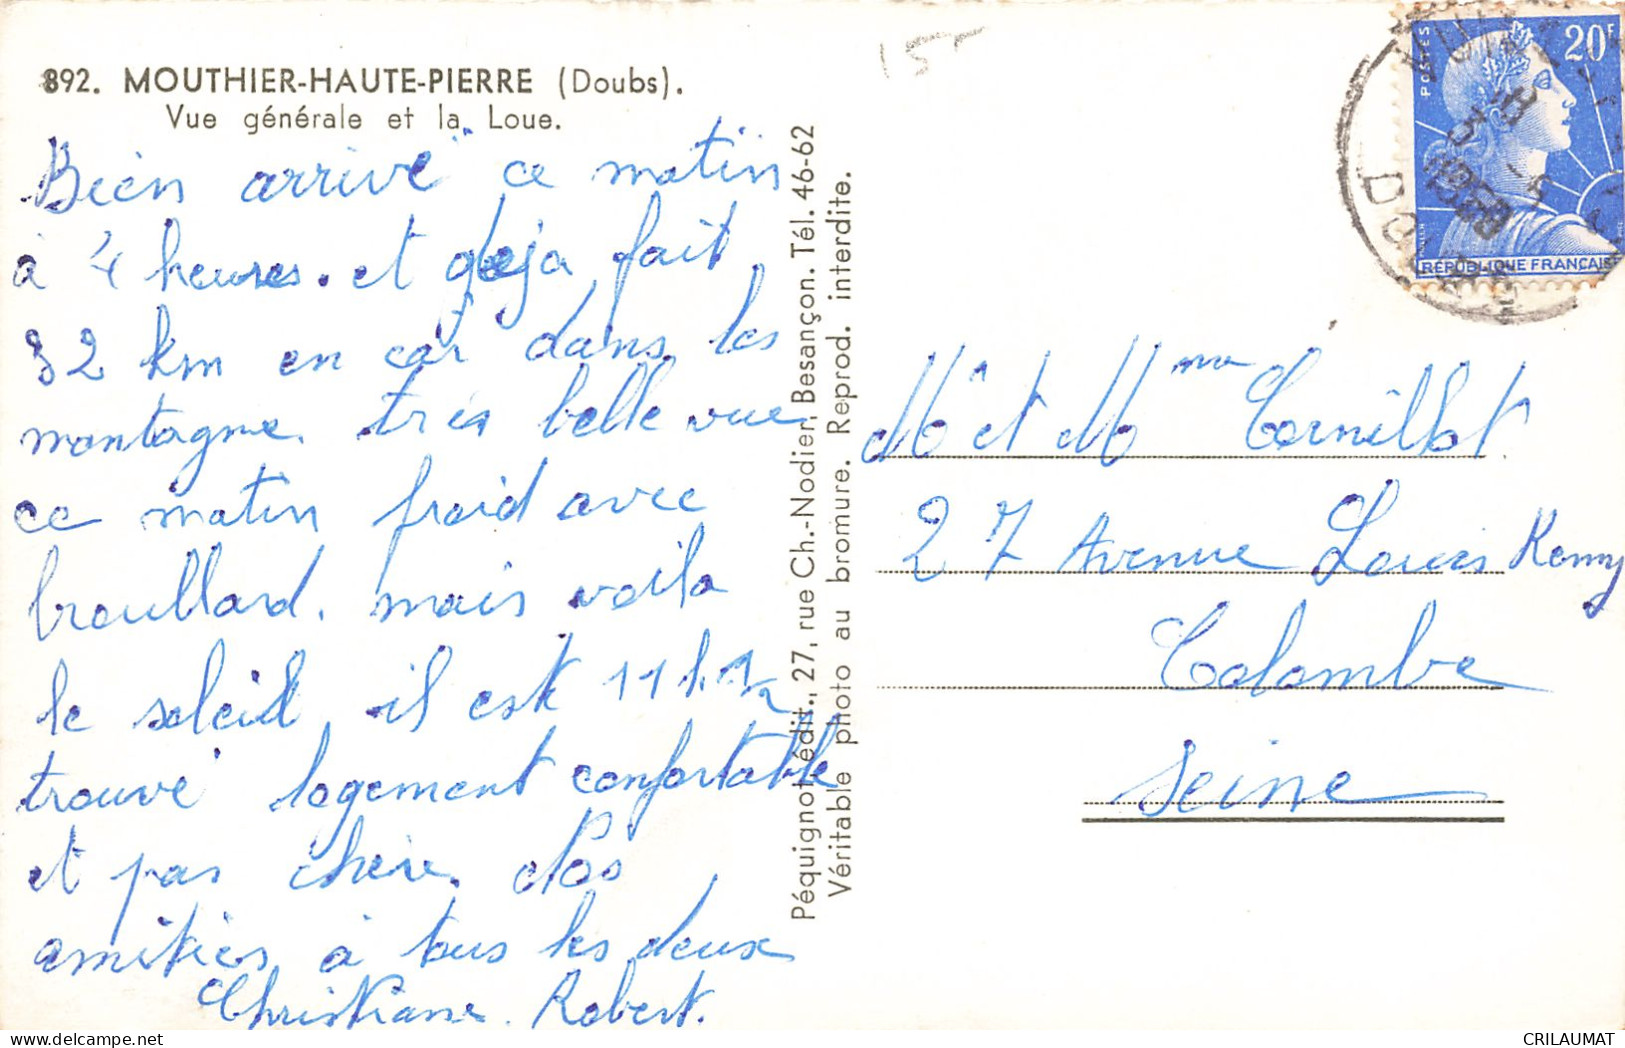 892. MOUTHIER-HAUTE-PIERRE (Doubs).
Vue générale et la Loue.
Bien arrivé ce matin
à 4 heures. et deja fait
32 km en car dans les
montagne. très belle vue
ce matin froid avec
brouillard. mais voila
le soleil il est 11 h 1/2
trouvé logement confortable
et pas chère. Nos
amitiés à tous les deux
Christiane. Robert.
Péquignot, édit., 27, rue Ch.-Nodier, Besançon. Tél. 46-62
Véritable photo au bromure. Reprod. interdite.
15-
POSTES
20F
RÉPUBLIQUE FRANÇAISE
DOUBS
Mr et Mme Cornillot.
27 Avenue Louis Remy
Colombe
Seine
CRILAUMAT